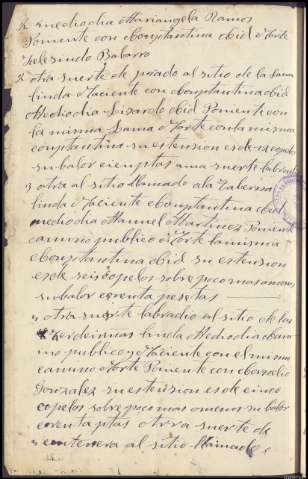 y mediodia Mariangela Ramos
Poniente con Constantina Cid y Norte
Gelesindo Babarro
y otra suerte de prado al sitio de la Lama
linda Naciente con Constantina Cid
Mediodia Lisardo Cid Poniente con
la misma Lama y Norte con la misma
Constantina su estension es de
su balor cien ptas una suerte labradio
y otra al sitio llamado da Taberna
linda Naciente Constantina Cid
mediodia Manuel Martinez Poniente
camino publico y Norte la misma
Constantina Cid su estension
es de seis copelos sobre poco mas o menos
su balor cuarenta pesetas
y otra suerte labradio al sitio de las
linda Mediodia cami
no publico y Naciente con el mismo
camino y Norte Poniente con
Gonzalez su estension es de cinco
copelos sobre poco mas o menos su balor
ptas otra suerte de
centenera al sitio llamado